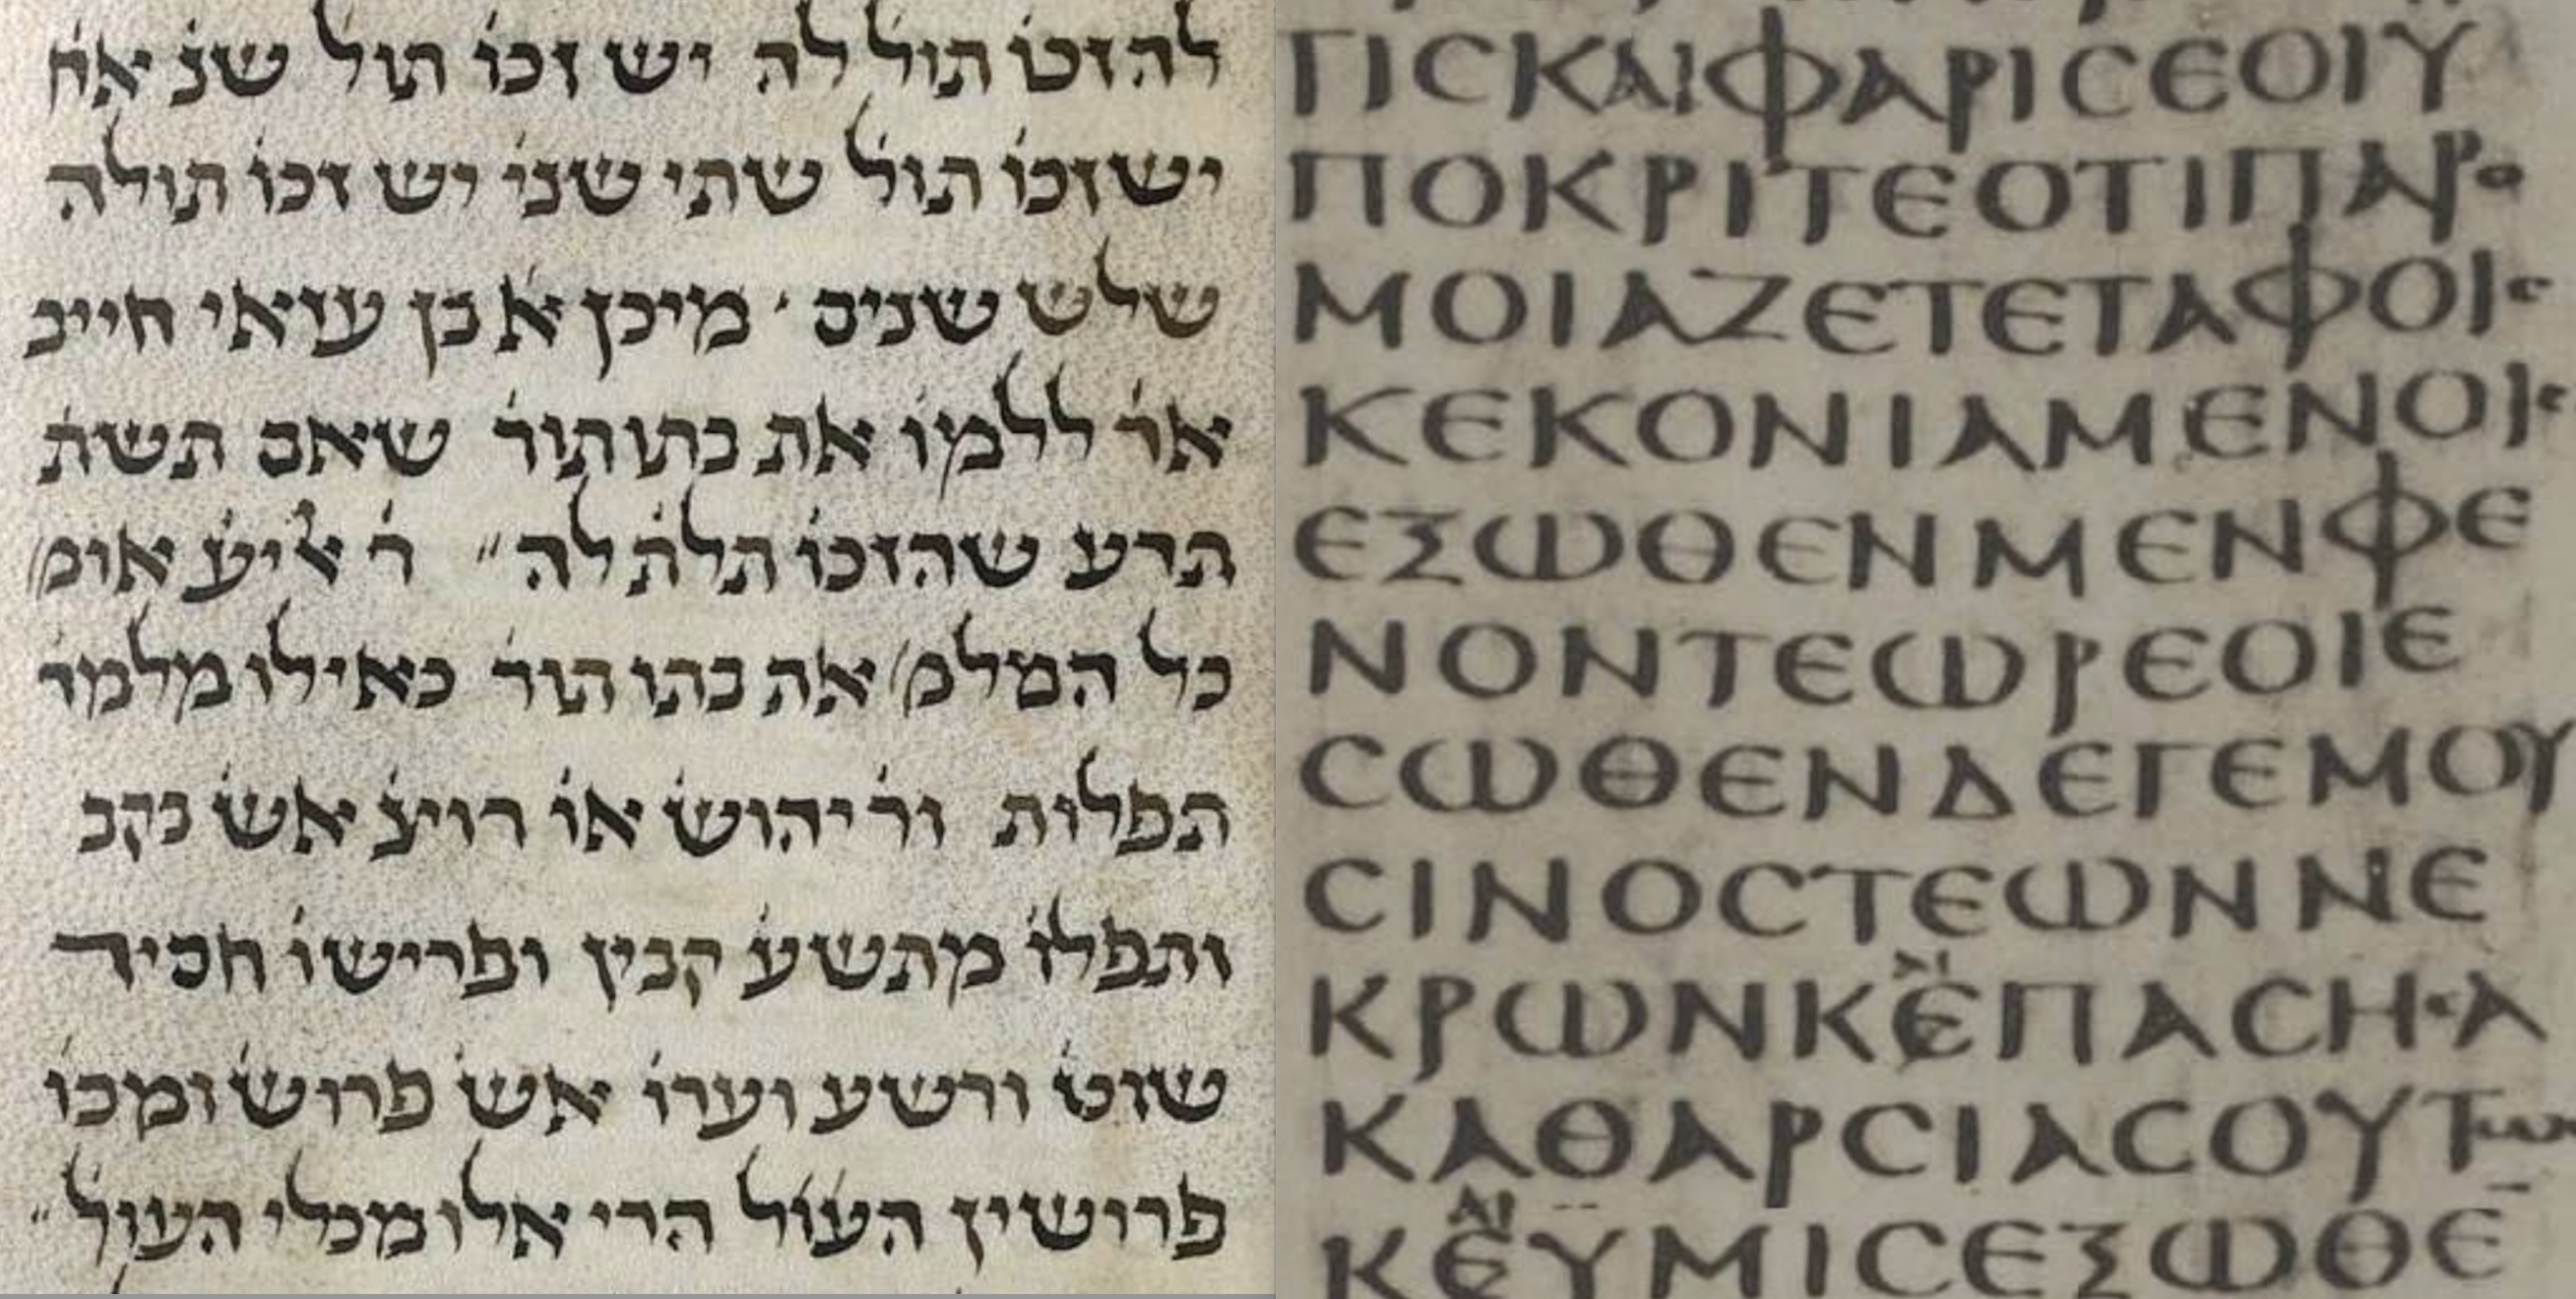 להזכו׳ תול׳ לה יש זכו׳ תול׳ שנ׳ אח׳
יש זכו׳ תול׳ שתי שני׳ יש זכו׳ תולה
שלש שנים · מיכן א׳ בן עזאי חייב
אד׳ ללמו׳ את בתו תור׳ שאם תשת׳
תדע שהזכו׳ תלת׳ לה״ ר׳ אליע׳ אומ׳
כל המלמ׳ את בתו תור׳ כאילו מלמד׳
תפלות ור׳ יהוש׳ או׳ רוצ׳ אש׳ בקב
ותפלו׳ מתשע׳ קבין ופרישו׳ חסיד
שוט׳ ורשע וערו׳ אש׳ פרוש׳ ומכו׳
פרושין העול׳ הרי אלו מכלי העול׳״
ΤΙϹΚΑΙΦΑΡΙϹΕΟΙΥ
ΠΟΚΡΙΤΕΟΤΙΠΑΡΟ
ΜΟΙΑΖΕΤΕΤΑΦΟΙϹ
ΚΕΚΟΝΙΑΜΕΝΟΙϹ
ΕΞΩΘΕΝΜΕΝΦΕ
ΝΟΝΤΕΩΡΕΟΙΕ
ϹΩΘΕΝΔΕΓΕΜΟΥ
ϹΙΝΟϹΤΕΩΝΝΕ
ΚΡΩΝΚΕΠΑϹΗϹΑ
ΚΑΘΑΡϹΙΑϹΟΥΤΩ
ΚΕΥΜΙϹΕΞΩΘΕ